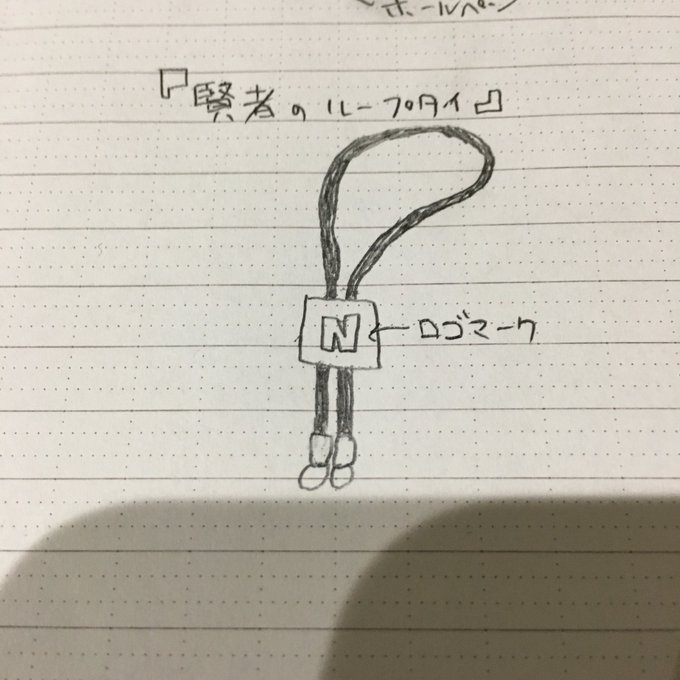 ボールペン
『賢者のループタイ』
N
ロゴマーク